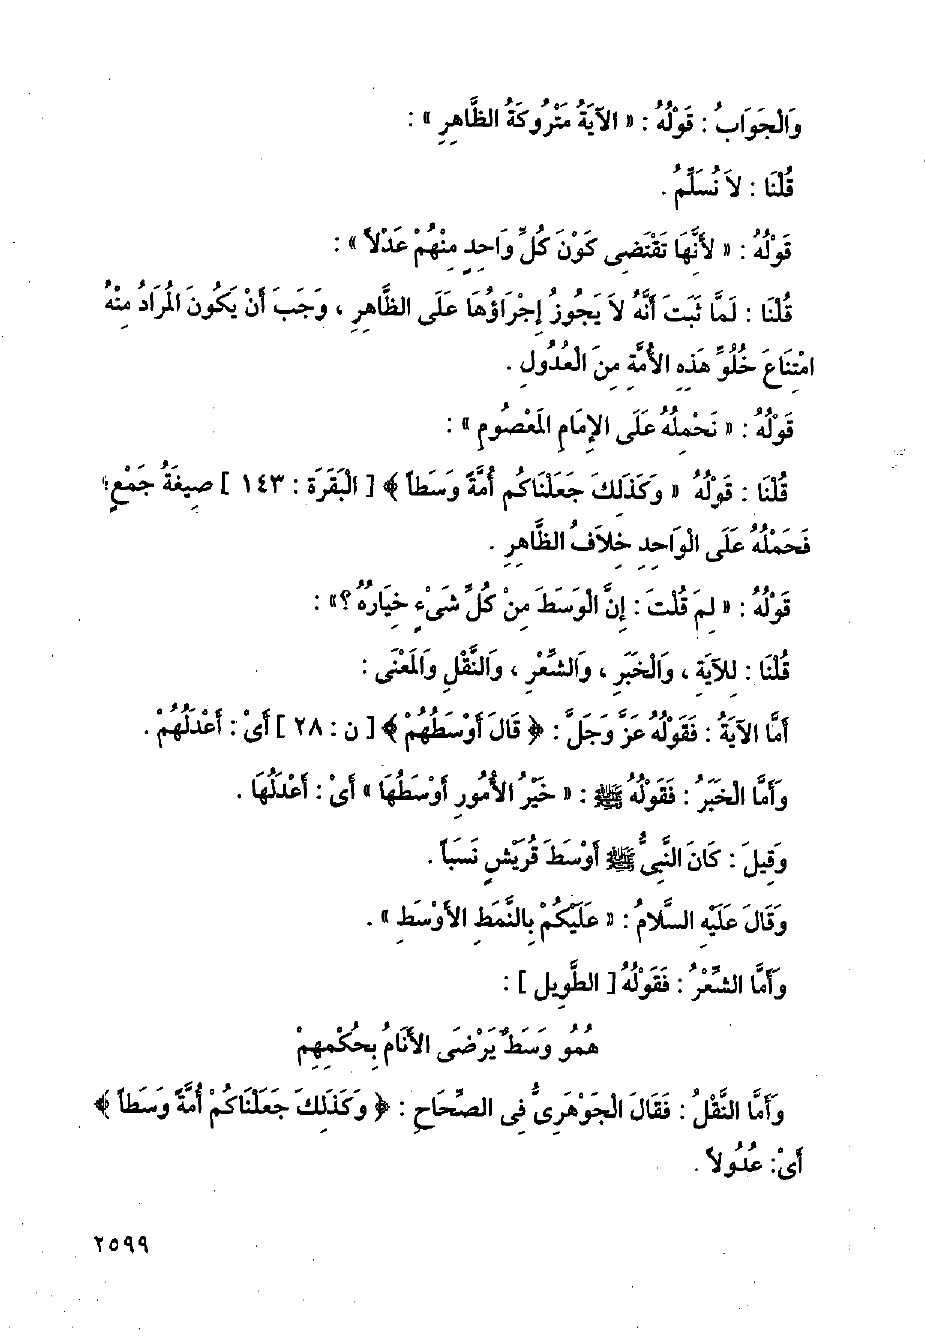 وَالْجَوَابُ : قَوْلُهُ : « الآيَةُ مَتْرُوكَةُ الظَّاهِرِ » :
قُلْنَا : لاَ نُسَلِّمُ .
قَوْلُهُ : « لأَنَّهَا تَقْتَضِى كَوْنَ كُلِّ وَاحِدٍ مِنْهُمْ عَدْلاً » :
قُلْنَا : لَمَّا ثَبَتَ أَنَّهُ لاَ يَجُوزُ إِجْرَاؤُهَا عَلَى الظَّاهِرِ ، وَجَبَ أَنْ يَكُونَ الْمُرَادُ مِنْهُ
امْتِنَاعَ خُلُوِّ هَذِهِ الأُمَّةِ مِنَ الْعُدُولِ .
قَوْلُهُ : « نَحْمِلُهُ عَلَى الإِمَامِ الْمَعْصُومِ » :
قُلْنَا : قَوْلُهُ « وَكَذَلِكَ جَعَلْنَاكُم أُمَّةً وَسَطاً ﴾ [ الْبَقَرَة : ١٤٣ ] صِيغَةُ جَمْعٍ؛
فَحَمْلُهُ عَلَى الْوَاحِدِ خِلاَفُ الظَّاهِرِ .
قَوْلُهُ : « لِمَ قُلْتَ : إِنَّ الْوَسَطَ مِنْ كُلِّ شَىْءٍ خِيَارُهُ ؟» :
قُلْنَا : لِلآيَةِ ، وَالْخَبَرِ ، وَالشِّعْرِ ، وَالنَّقْلِ وَالْمَعْنَى :
أَمَّا الآيَةُ : فَقَوْلُهُ عَزَّ وَجَلَّ : ﴿ قَالَ أَوْسَطُهُمْ ﴾ [ ن : ٢٨ ] أَىْ : أَعْدَلُهُمْ .
وَأَمَّا الْخَبَرُ : فَقَوْلُهُ ﷺ : « خَيْرُ الأُمُورِ أَوْسَطُهَا » أَىْ : أَعْدَلُهَا .
وَقِيلَ : كَانَ النَّبِىُّ ﷺ أَوْسَطَ قُرَيْشٍ نَسَباً .
وَقَالَ عَلَيْهِ السَّلاَمُ : « عَلَيْكُمْ بِالنَّمَطِ الأَوْسَطِ » .
وَأَمَّا الشِّعْرُ : فَقَوْلُهُ [ الطَّوِيل ] :
هُمُو وَسَطٌ يَرْضَى الأَنَامُ بِحُكْمِهِمْ
وَأَمَّا النَّقْلُ : فَقَالَ الْجَوْهَرِىُّ فِى الصِّحَاحِ : ﴿ وَكَذَلِكَ جَعَلْنَاكُمْ أُمَّةً وَسَطاً ﴾
أَىْ: عُدُولاً .
٢٥٩٩